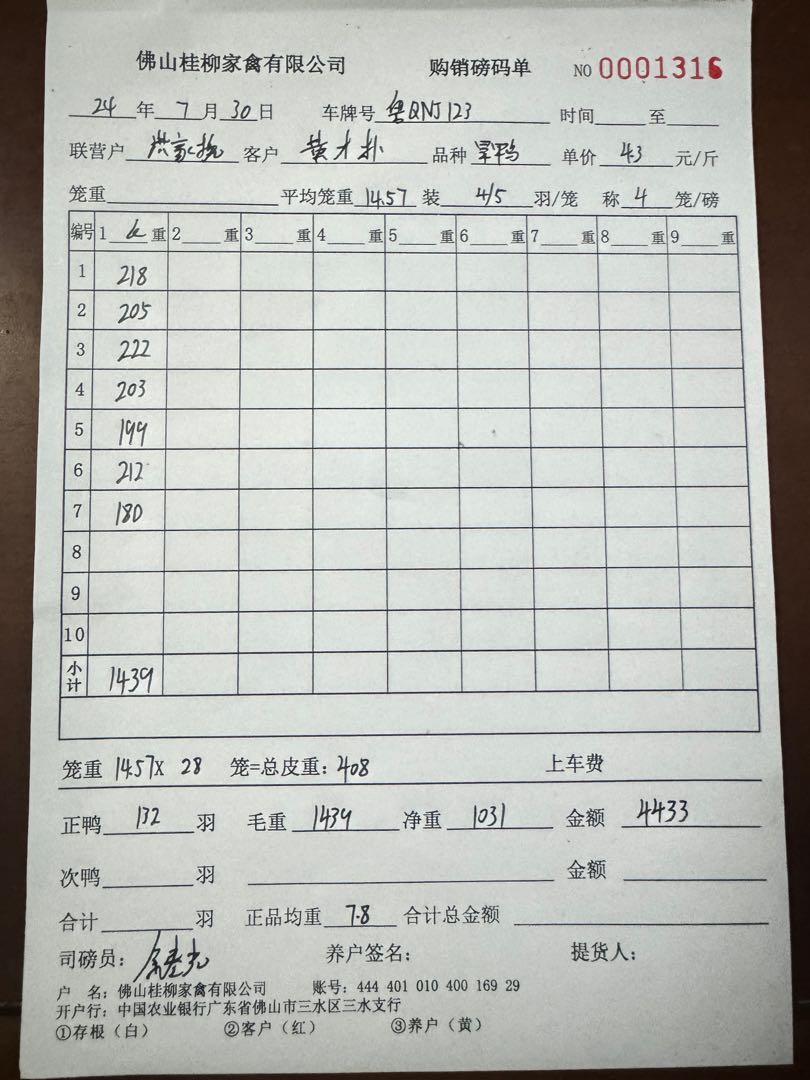 佛山桂柳家禽有限公司 购销磅码单 NO 0001316
24 年 7 月 30 日 车牌号 粤QNJ123 时间 至
联营户 洪家 客户 黄才 品种 旱鸭 单价 43 元/斤
笼重 平均笼重 14.57 装 4/5 羽/笼 称 4 笼/磅
编号 1 重 2 重 3 重 4 重 5 重 6 重 7 重 8 重 9 重
1 218
2 205
3 222
4 203
5 199
6 212
7 180
8
9
10
小计 1439
笼重 14.57X 28 笼=总皮重: 408 上车费
正鸭 132 羽 毛重 1439 净重 1031 金额 4433
次鸭 羽 金额
合计 羽 正品均重 7.8 合计总金额
司磅员: 养户签名: 提货人:
户 名: 佛山桂柳家禽有限公司 账号: 444 401 010 400 169 29
开户行: 中国农业银行广东省佛山市三水区三水支行
①存根(白) ②客户(红) ③养户(黄)